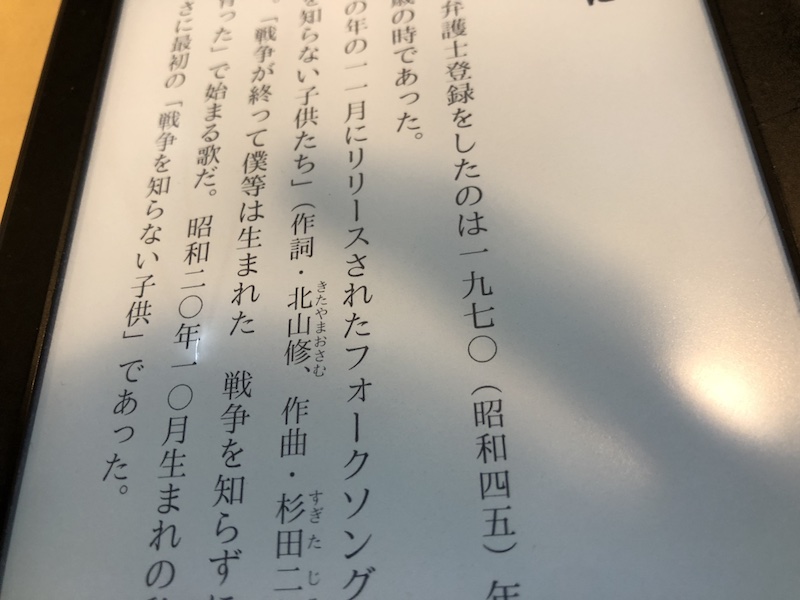 に
弁護士登録をしたのは一九七〇（昭和四五）年
歳の時であった。
の年の一一月にリリースされたフォークソング
を知らない子供たち」（作詞・北山修、作曲・杉田二
きたやまおさむ
すぎたじ
。「戦争が終って僕等は生まれた　戦争を知らずに
育った」で始まる歌だ。昭和二〇年一〇月生まれの
さに最初の「戦争を知らない子供」であった。